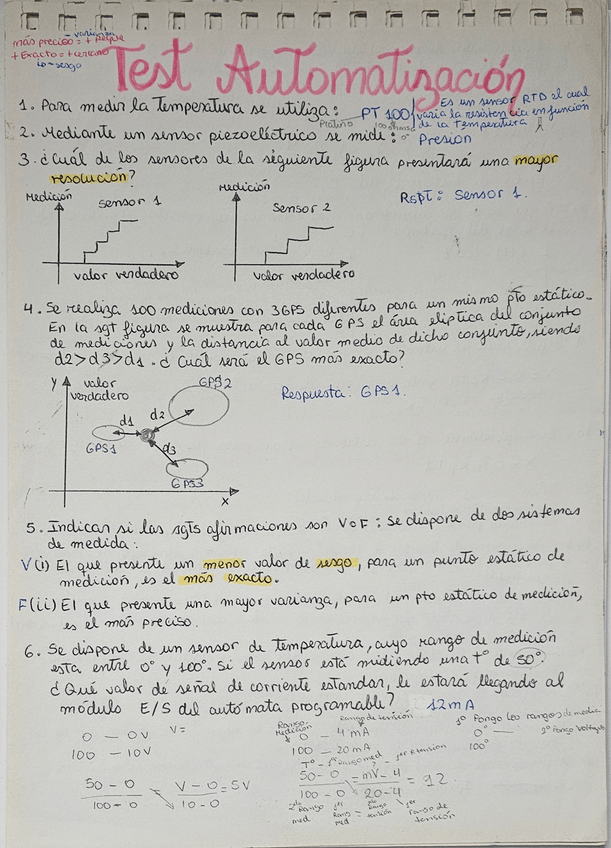 más preciso = + peque
varianza
+ Exacto = + cercano
sesgo
Test Automatización
1. Para medir la Temperatura se utiliza: PT 100
Platino
Es un sensor RTD el cual
varia la resistencia en función
de la Temperatura
2. Mediante un sensor piezoeléctrico se mide: Presion
3. ¿Cuál de los sensores de la siguiente figura presentará una mayor
resolución?
Medición
sensor 1
valor verdadero
Medición
sensor 2
valor verdadero
Rspt: Sensor 1.
4. Se realiza 100 mediciones con 3GPS diferentes para un mismo pto estático.
En la sgt figura se muestra para cada GPS el área eliptica del conjunto
de mediciones y la distancia al valor medio de dicho conjunto, siendo
d2>d3>d1. ¿Cuál será el GPS más exacto?
Y
valor
verdadero
GPS2
d1
d2
GPS1
d3
GPS3
X
Respuesta: GPS1.
5. Indicar si las sgts afirmaciones son V o F: Se dispone de dos sistemas
de medida:
V (i) El que presente un menor valor de sesgo, para un punto estático de
medición, es el más exacto.
F (ii) El que presente una mayor varianza, para un pto estático de medición,
es el más preciso.
6. Se dispone de un sensor de temperatura, cuyo rango de medición
esta entre 0° y 100°. Si el sensor está midiendo una T° de 50°.
¿Qué valor de señal de corriente estandar, le estará llegando al
módulo E/S del autómata programable? 12mA
0 — 0V
V=
100 — 10V
50 - 0 / 100 - 0 = V - 0 / 10 - 0 = 5V
Rango
Medición
Rango de tensión
0 — 4 mA
100 — 20 mA
T° - 1°Rango med
1er R tensión
50 - 0 / 100 - 0 = mV - 4 / 20 - 4 = 12
2do Rango med
1er Rang med
2do Rango tensión
1er rango de tensión
1° Pongo los rangos de media
0° —
2° Pongo Voltaje
100°